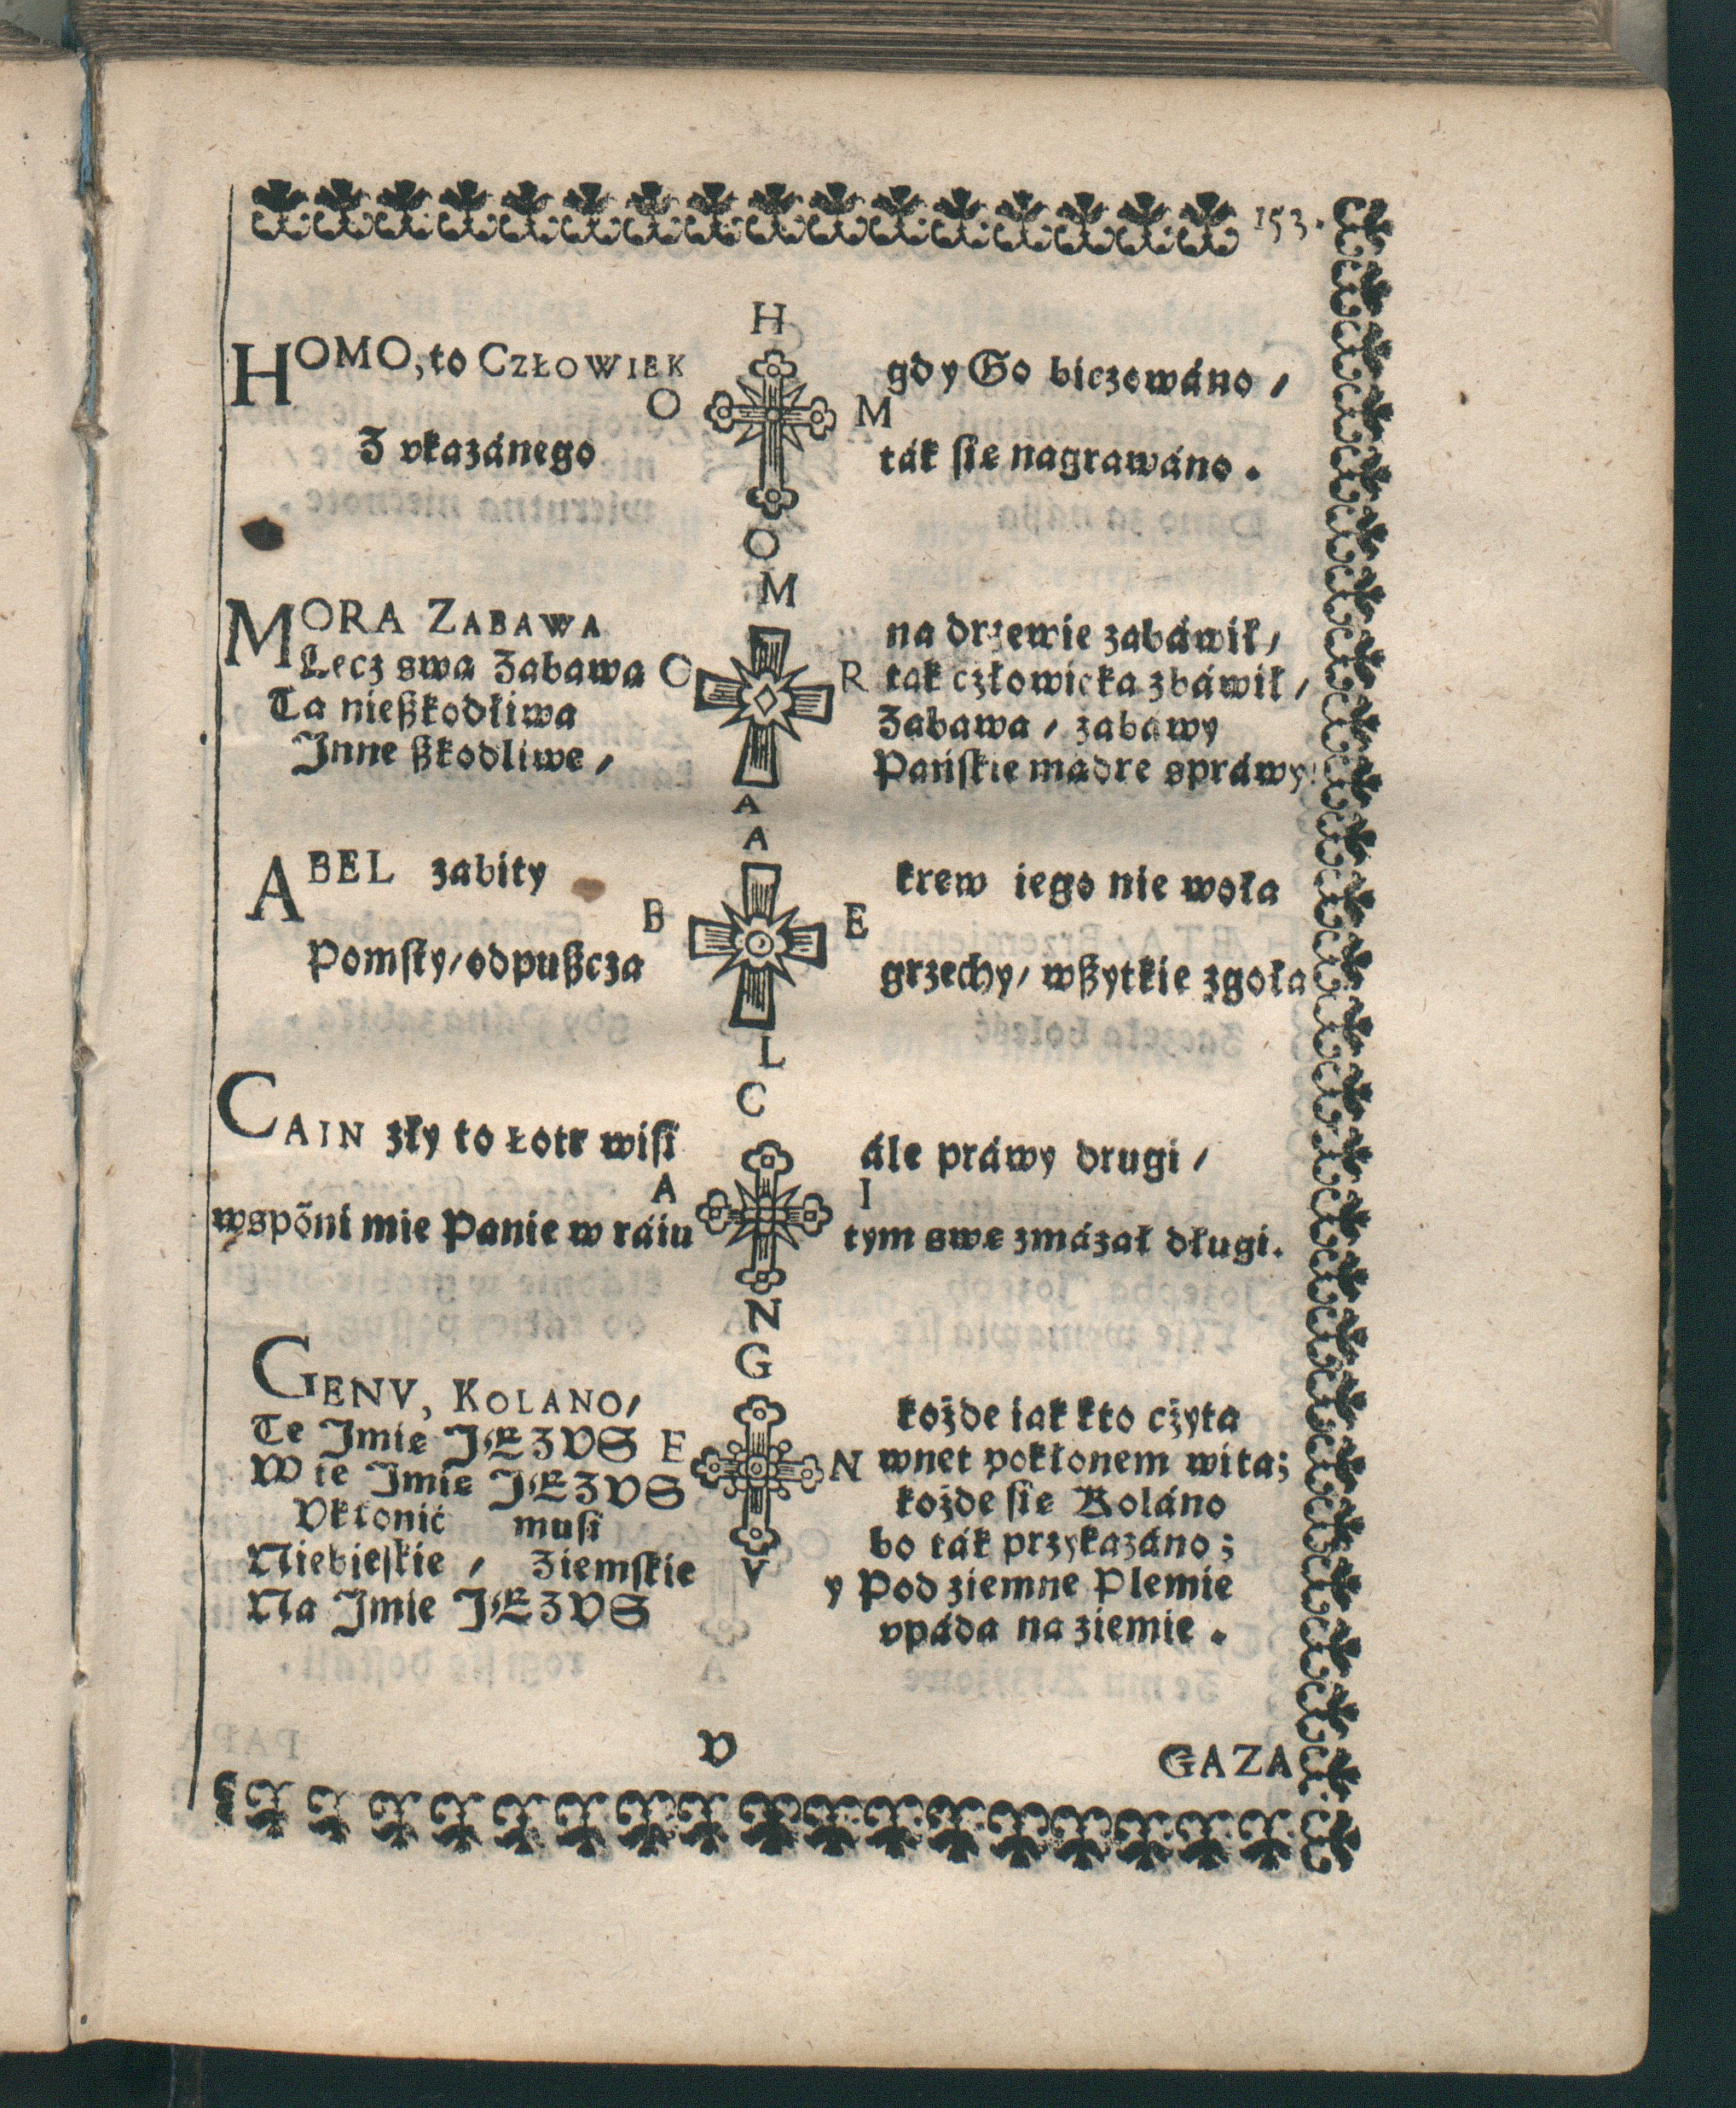 153.
H
HOMO, to CZŁOWIEK gdy Go biczowáno /
O M
Z vkazánego ták ſie nagrawáno.
O
M
MORA ZABAWA na drzewie zabáwił /
Lecz swa Zabawa O R tak człowieka zbáwił /
Ta nießkodliwa Zabawa / zabawy
Inne ßkodliwe / Pańſkie madre spráwy
A
A
ABEL zabity krew iego nie woła
B E
Pomſty / odpußcza grzechy / wßytkie zgoła
L
C
CAIN zły to Łotr wiſi ále práwy drugi /
A I
wspõni mie Panie w ráiu tym swe zmázał długi.
N
G
GENV, KOLANO / kożde iak kto cżyta
Te Imie IEZVS E N wnet pokłonem wita;
W te Imie IEZVS kożde ſie Koláno
Vkłonić muſi bo ták przykazáno;
Niebieſkie / Ziemſkie V y Pod ziemne Plemie
Na Imie IEZVS vpáda na ziemie.
V GAZA